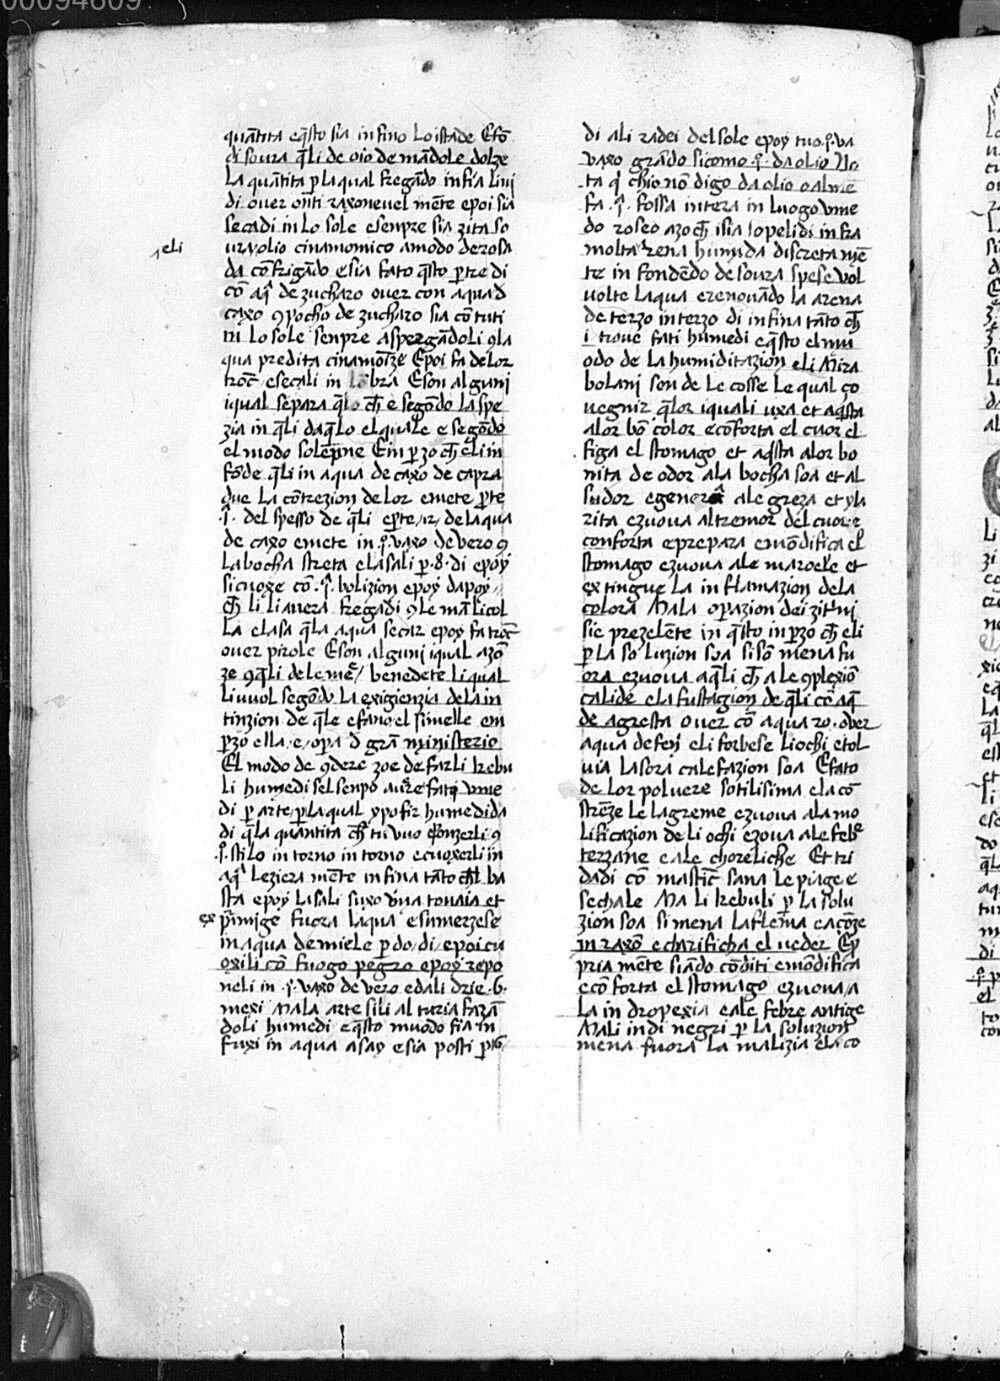 00094609
quãtita eq̃sto sia in fino lo istade E fo
di soura q̃li de oio de mãdole dolze
la quãtita p la qual fregado in fra livi
di over onti raxonevel mẽte epoi sia
secadi in lo sole e senpre sia zita so
vra olio cinamomico amodo de rosa
eli
da cõ frigãdo e sia fato q̃sto p tre di
cõ aq̃ de zucharo over con aqua d
caxo 9 pocho de zucharo sia cõ tuti
in lo sole senpre aspergãdoli 9 la
qua predita cinamoze Epoi fa de lor
troc̃ e secali in lõbra E son alguni
iqual separa q̃lo ch̃ e segõdo la spe
zia in q̃li da q̃lo el quale e segõdo
el modo solẽpne E in p zo ch̃ eli in
fõde q̃li in aqua de caxo de capra
que la cõtrezion de lor e mete p te
.i. del spesso de q̃li e p te .12. de la qua
de caxo e mete in .i. vaxo de vero 9
la bocha streta e lasali p .8. di epoy
si cuoxe cõ .i. bolizion epoy dapoy
ch̃ li li avera fregadi 9 le mã li col
la e lasa q̃la aqua secar epoy fa troc̃
over pirole E son alguni iqual azõ
ze 9 q̃li de le me / benedete li qual
li vuol segõdo la exigienzia de la in
tinzion de q̃le e fano el simelle e in
p zo ella e opa d grã ministerio
El modo de 9dere zoe de farli kebu
li humedi sel senpo avere fati ume
di p arte p la qual ypo fir humedida
di q̃la quantita ch̃ tu vuo 9ponzerli 9
.i. stilo in torno in torno e cuoxerli in
aq̃ leziera mẽte in fina tãto ch̃l ba
sta epoy lasali suxo una tovaia et
ex
prime fuora laqua e sumerzese
in aqua de miele p do di epoi cu
oxili cõ fuogo pegro epoy repo
neli in .i. vaxo de vero e dali drie .6.
mexi Ma la arte si li al turia fazã
doli humedi e q̃sto muodo fia in
fuxi in aqua asay e sia posti p .6.
di ali radei del sole epoy tuo .i. va
vaxo grãdo sicomo .i. da olio No
ta q̃ ch'io nõ digo da olio o alme
fa .i. fossa intera in luogo ume
do roseo azo ch̃ i sia sopelidi in fra
molta rena humida discreta mẽ
te in fondẽdo de soura spese vol
volte laqua e renovãdo la arena
de terzo in terzo di in fina tãto ch̃
i trove fati humedi e q̃sto el mu
odo de la humiditazion eli Mira
bolani son de le cosse le qual ço
vegnir q̃lor iquali uxa et aq̃sta
alor bõ color e cõforta el cuor el
figa el stomago et aq̃sta alor bo
nita de odor ala bocha soa et al
sudor e genera alegreza et yla
rita e zuova al tremor del cuor e
conforta e prepara e mõdifica el
stomago e zuova ale maroele et
extingue la inflamazion dela
colora Mala opazion dei zitrini
sie prezelẽte in q̃sto in p zo ch̃ eli
p la soluzion soa si sõ mena fu
ora e zuova aq̃li ch̃ a le 9plexiõ
calide e la fustagion de q̃li cõ aq̃
de agresta over cõ aqua ro. over
aqua de fenj eli forbese li ochi e tol
via la sora calefazion soa E fato
de lor polvere sotilisima e la cõ
strẽze le lagreme e zuova ala mo
lificazion de li ochi e zova ale feb̃
terzane e ale choreliche Et tri
dadi cõ mastic̃ sana le piage e
sechale Ma li kebuli p la solu
zion soa si mena la flema e acõze
in raxõ e clarificha el veder E p
pria mẽte siãdo cõditi e mõdifica
e cõforta el stomago e zuova a
la indropexia e ale febre antige
Mali indi negri p la soluzion
mena fuora la malizia ela co